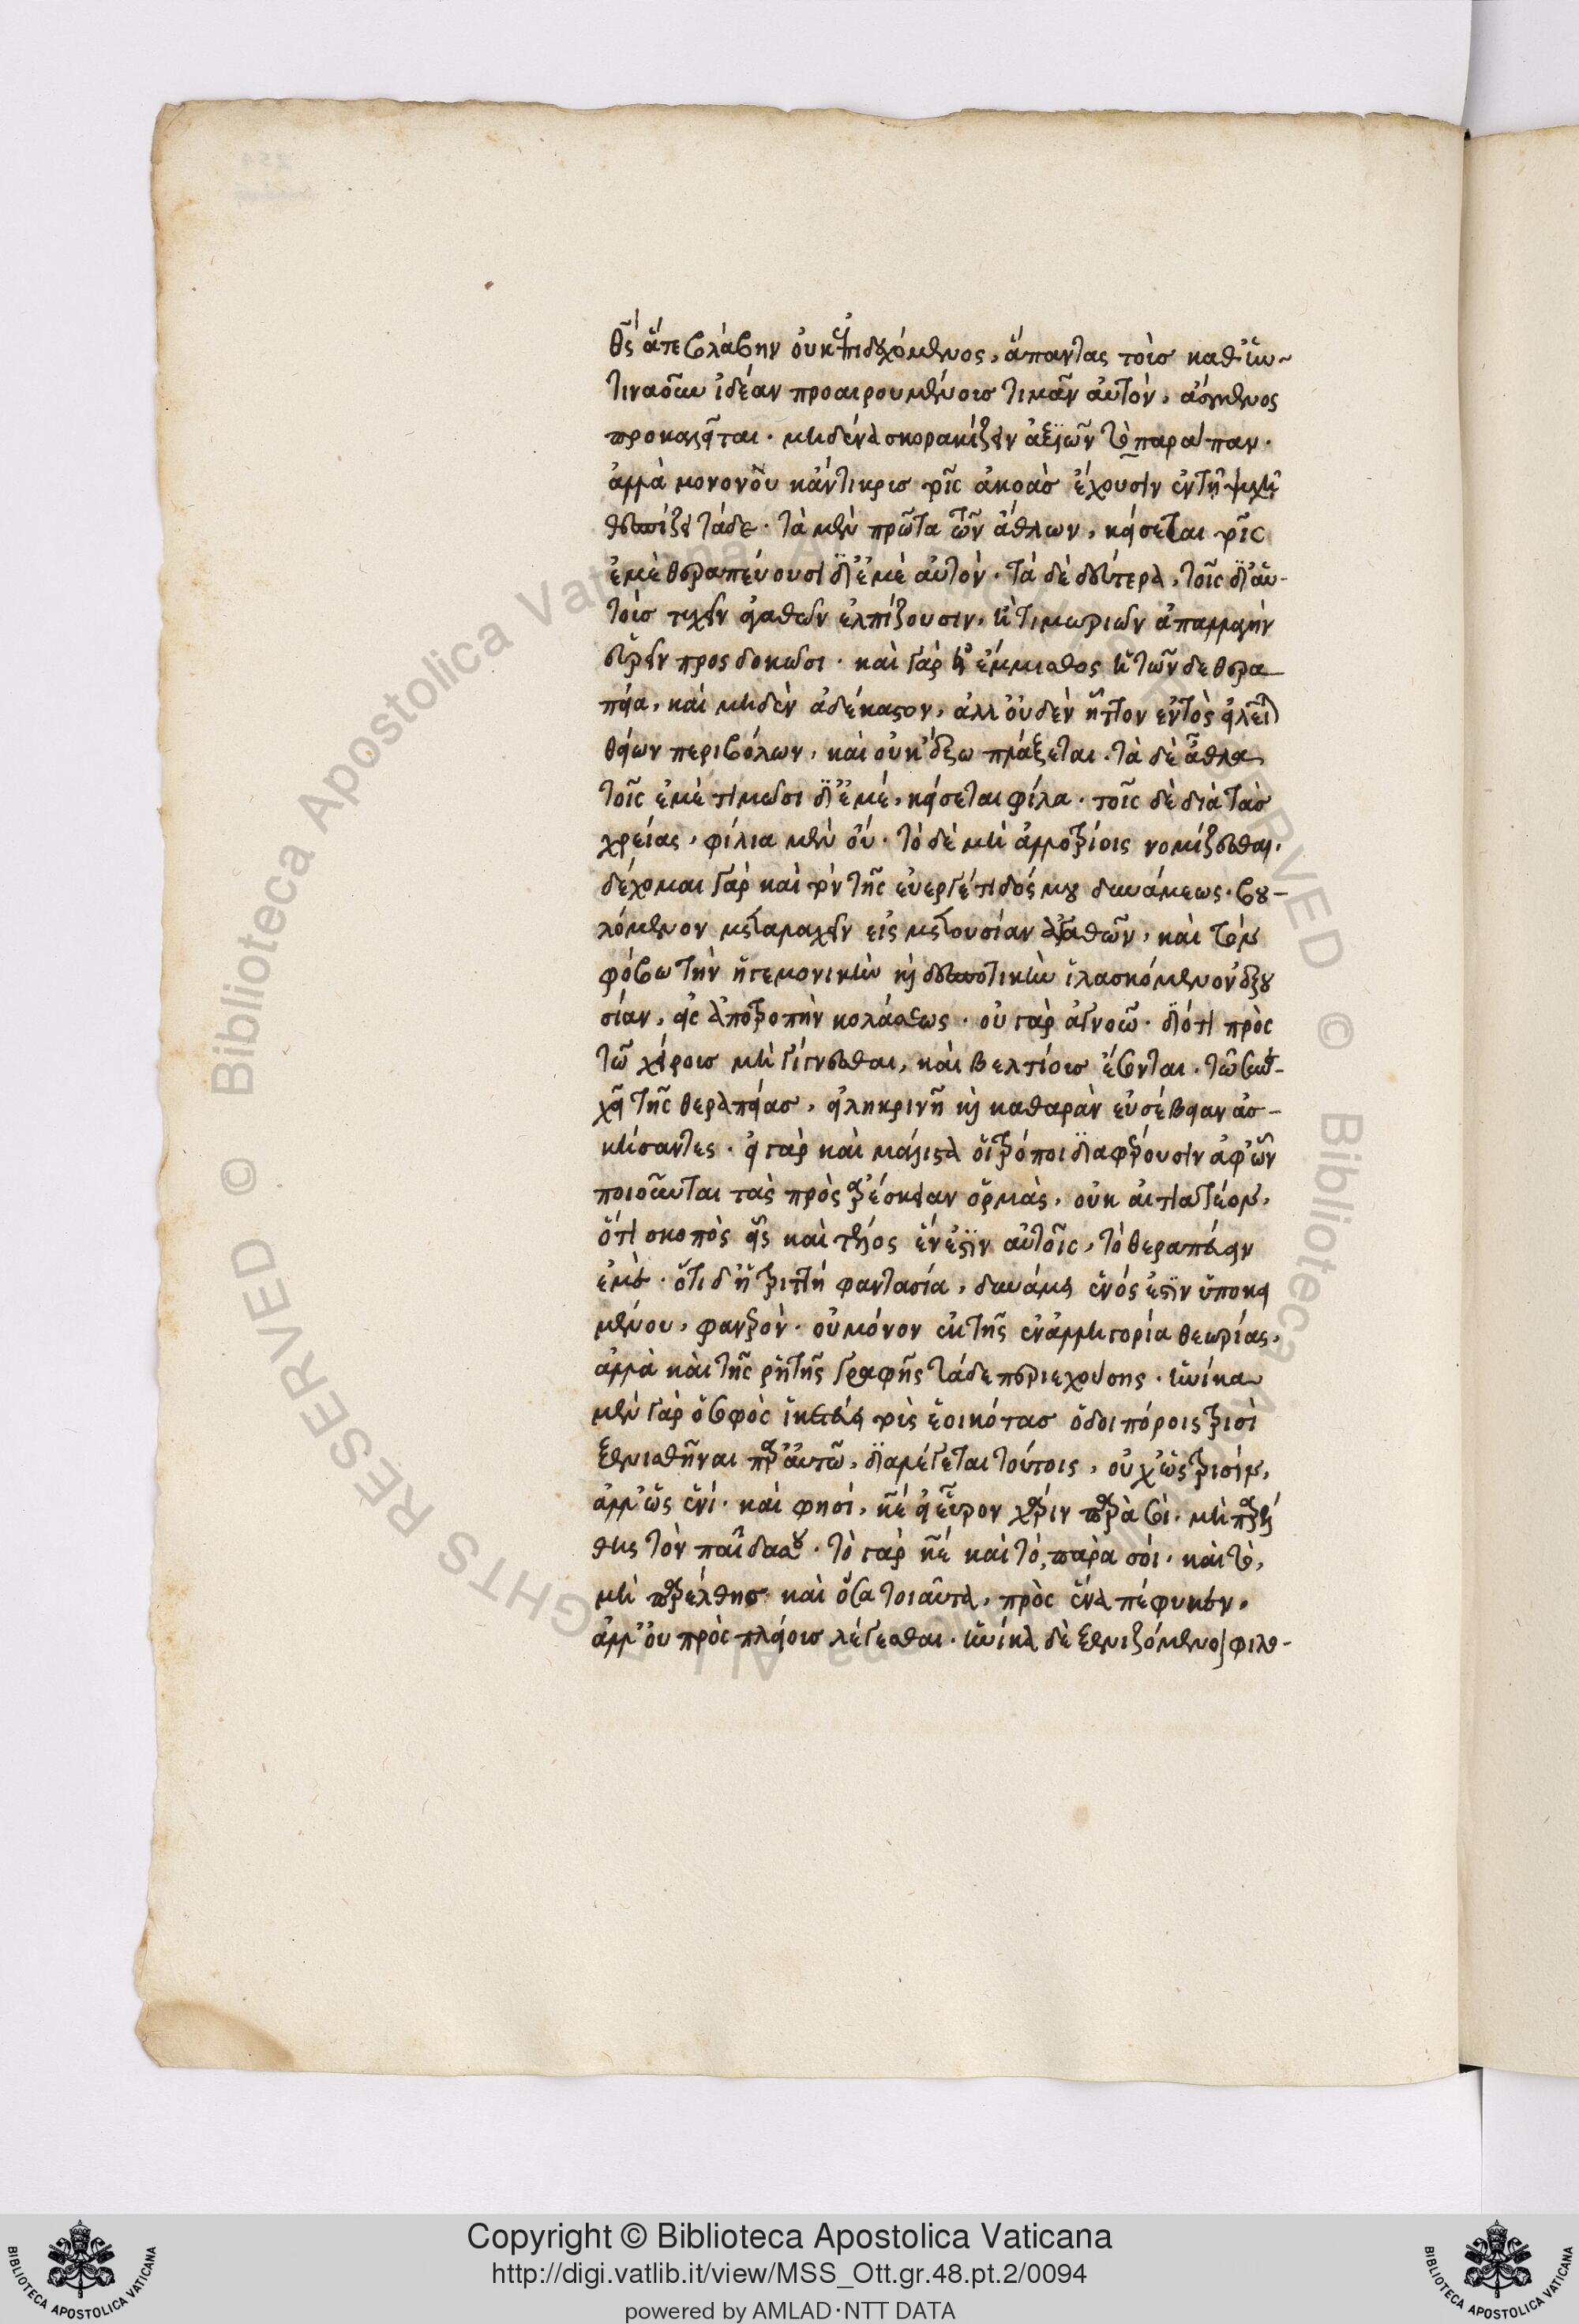 θς ἅτε βλάβην οὐκ ἐπιδεχόμενος, ἅπαντας τοῖσ καθ' ἣν
τιναοῦν ἰδέαν προαιρουμένοισ τιμᾶν αὐτὸν, ἀσμενος
προκαλεῖται. μηδένα σκορακίζειν ἀξιῶν τὸ παράπαν.
ἀλλὰ μονονοὺ κἄντικρισ τοῖς ἀκοὰσ ἔχουσιν ἐν τῇ ψυχῇ
θεσπίζει τάδε. τὰ μὲν πρῶτα τῶν ἄθλων, κείσεται τοῖς
ἐμὲ θεραπεύουσι δι' ἐμὲ αὐτὸν. τὰ δὲ δεύτερα, τοῖς δι' αὑ-
τοὺσ τυχεῖν ἀγαθῶν ἐλπίζουσιν, ἢ τιμωριῶν ἀπαλλαγὴν
εὑρεῖν προσδοκῶσι. καὶ γὰρ εἰ ἔμμισθος ἡ τῶνδε θερα
πεία, καὶ μηδὲν ἀδέκαστον, ἀλλ' οὐδὲν ἧττον ἐντὸς εἰλεῖται
θείων περιβόλων, καὶ οὐκ ἔξω πλάζεται. τὰ δὲ ἆθλα
τοῖς ἐμὲ τιμῶσι δι' ἐμέ, κείσεται φίλα. τοῖς δὲ διὰ τὰσ
χρείας, φίλια μὲν οὔ. τὸ δὲ μὴ ἀλλοτρίοις νομίζεσθαι.
δέχομαι γὰρ καὶ τὸν τῆς εὐεργέτιδός μου δυνάμεως. βου-
λόμενον μεταλαχεῖν εἰς μετουσίαν ἀγαθῶν, καὶ τὸν
φόβω τὴν ἡγεμονικὴν κὶ δεσποτικὴν ἱλασκόμενον ἐξου
σίαν, εἰς ἀποτροπὴν κολάσεως. οὐ γὰρ ἀγνοῶ. διότι πρὸς
τῶ χείροισ μὴ γίγνεσθαι, καὶ βελτίοισ ἔσονται. τῶ συνε-
χεῖ τῆς θεραπείασ, εἰληκρινῆ κὶ καθαρὰν εὐσέβειαν ἀσ-
κήσαντες. εἰ γὰρ καὶ μάλιστα οἱ τρόποι διαφέρουσιν ἀφ' ὧν
ποιοῦνται τὰς πρὸς ἀρέσκειαν ὁρμὰς, οὐκ αἰτιατέον,
ὅτι σκοπὸς εἷς καὶ τέλος ἕν ἐστὶν αὐτοῖς, τὸ θεραπεύειν
ἐμέ. ὅτι δ' ἡ τριττὴ φαντασία, δυνάμει ἑνός ἐστιν ὑποκει
μένου, φανερὸν. οὐ μόνον ἐκ τῆς ἐν ἀλληγορία θεωρίας,
ἀλλὰ καὶ τῆς ῥητῆς γραφῆς τάδε περιεχούσης. ἡνίκα
μὲν γὰρ ὁ σοφὸς ἱκετεύει τοὺς ἐοικότασ ὁδοιπόροις τρισὶ
ξενισθῆναι παρ' αὐτῶ, διαλέγεται τούτοις, οὐχ' ὡς τρισὶν,
ἀλλ' ὡς ἑνί. καὶ φησί, κε εἰ εὗρον χάριν παρὰ σοὶ. μὴ παρέλ
θης τὸν παῖδα σου. τὸ γὰρ κε καὶ τό, παρὰ σόι. καὶ τὸ,
μὴ παρέλθησ. καὶ ὅσα τοιαῦτα, πρὸς ἕνα πέφυκεν,
ἀλλ' οὐ πρὸς πλείοισ λέγεσθαι. ἡνίκα δὲ ξενιζόμενοι φιλο-
Copyright © Biblioteca Apostolica Vaticana
http://digi.vatlib.it/view/MSS_Ott.gr.48.pt.2/0094
powered by AMLAD·NTT DATA